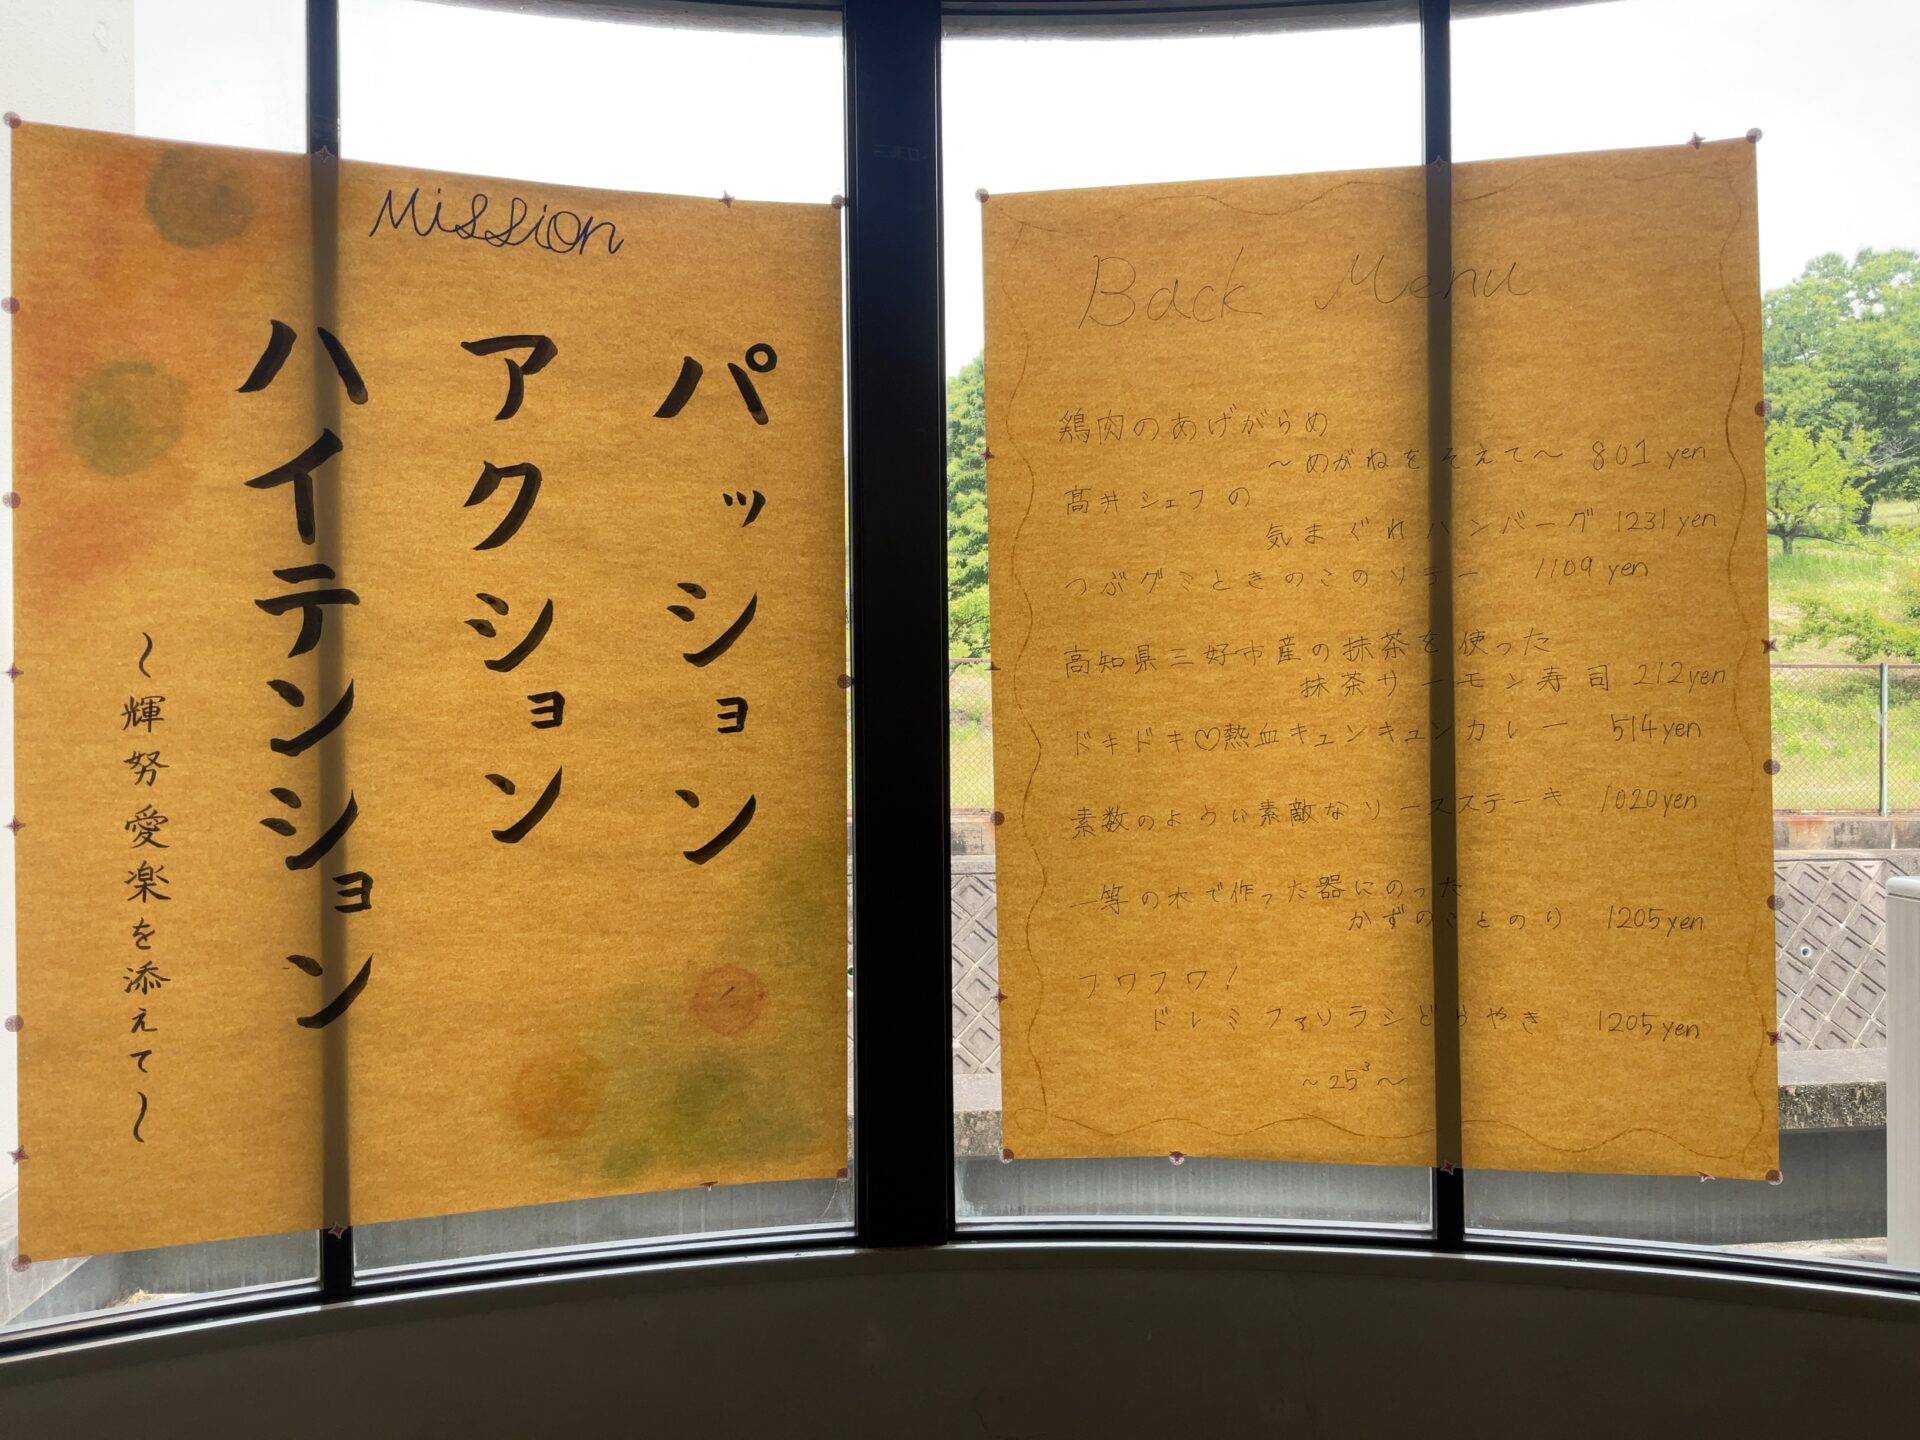 Mission
パッション
アクション
ハイテンション
〜輝努愛楽を添えて〜
Back Menu
鶏肉のあげがらめ
〜めがねをそえて〜 801 yen
髙井シェフの
気まぐれハンバーグ 1231 yen
つぶグミときのこのソテー 1109 yen
高知県三好市産の抹茶を使った
抹茶サーモン寿司 212yen
ドキドキ♡熱血キュンキュンカレー 514yen
素数のような素敵なソースステーキ 1020yen
一等の木で作った器にのった
かずのことのり 1205yen
フワフワ!
ドレミファソラシどらやき 1205yen
〜25³〜